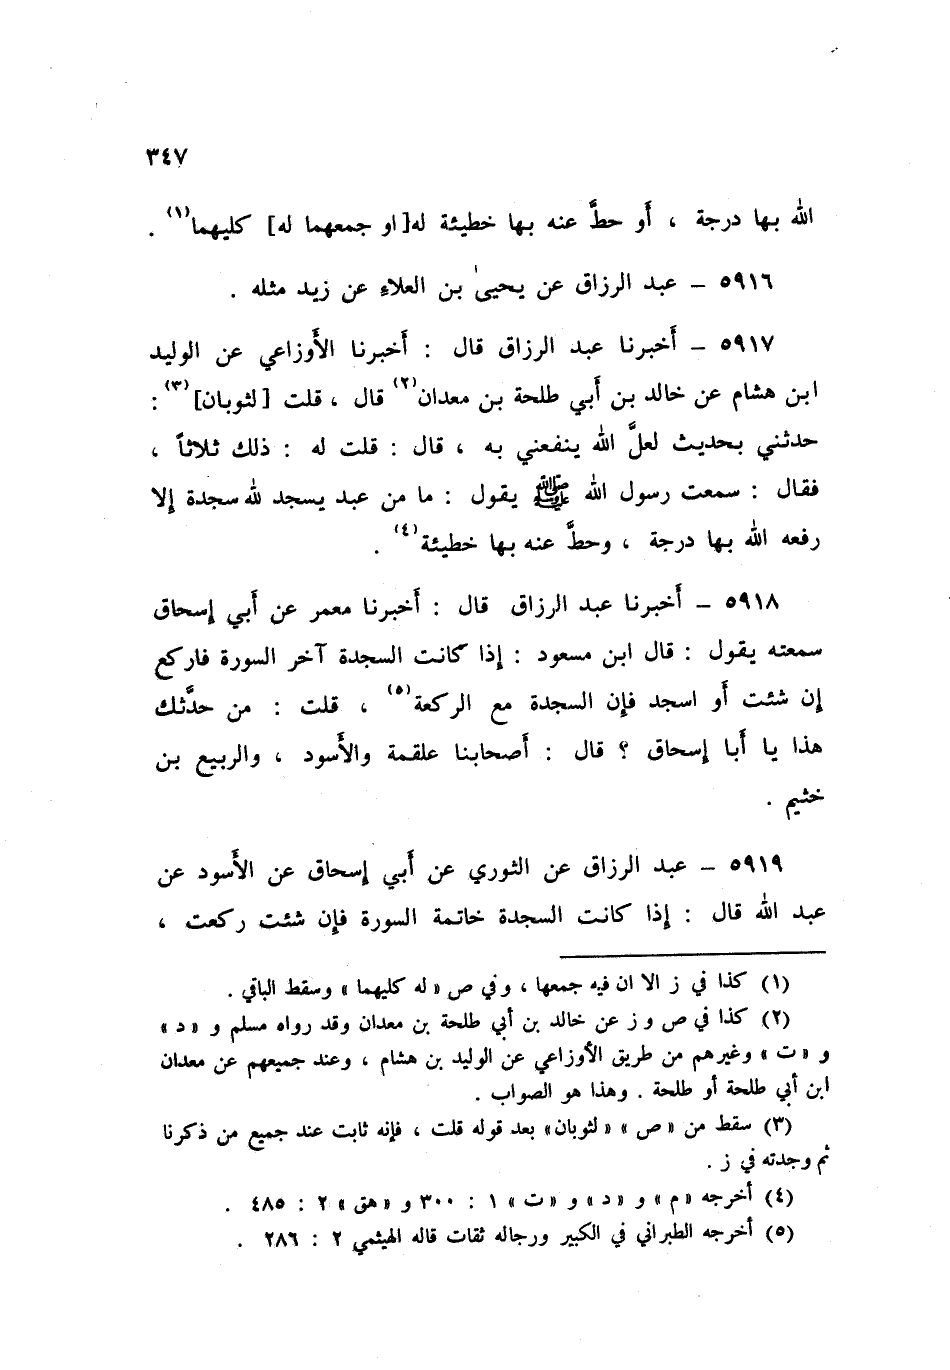 ٣٤٧
الله بها درجة ، أو حطَّ عنه بها خطيئة له[ او جمعهما له] كليهما(١) .
٥٩١٦ – عبد الرزاق عن يحيىٰ بن العلاء عن زيد مثله .
٥٩١٧ – أخبرنا عبد الرزاق قال : أخبرنا الأوزاعي عن الوليد
ابن هشام عن خالد بن أبي طلحة بن معدان(٢) قال ، قلت [لثوبان](٣) :
حدثني بحديث لعلَّ الله ينفعني به ، قال : قلت له : ذلك ثلاثاً ،
فقال : سمعت رسول الله ﷺ يقول : ما من عبد يسجد لله سجدة إلا
رفعه الله بها درجة ، وحطَّ عنه بها خطيئة(٤) .
٥٩١٨ – أخبرنا عبد الرزاق قال : أخبرنا معمر عن أبي إسحاق
سمعته يقول : قال ابن مسعود : إذا كانت السجدة آخر السورة فاركع
إن شئت أو اسجد فإن السجدة مع الركعة(٥) ، قلت : من حدَّثك
هذا يا أبا إسحاق ؟ قال : أصحابنا علقمة والأسود ، والربيع بن
خثيم .
٥٩١٩ – عبد الرزاق عن الثوري عن أبي إسحاق عن الأسود عن
عبد الله قال : إذا كانت السجدة خاتمة السورة فإن شئت ركعت ،
(١) كذا في ز الا ان فيه جمعها ، وفي ص « له كليهما » وسقط الباقي .
(٢) كذا في ص و ز عن خالد بن أبي طلحة بن معدان وقد رواه مسلم و « د »
و « ت » وغيرهم من طريق الأوزاعي عن الوليد بن هشام ، وعند جميعهم عن معدان
ابن أبي طلحة أو طلحة . وهذا هو الصواب .
(٣) سقط من « ص » « لثوبان» بعد قوله قلت ، فإنه ثابت عند جميع من ذكرنا
ثم وجدته في ز .
(٤) أخرجه « م » و « د » و « ت » ١ : ٣٠٠ و « هق » ٢ : ٤٨٥ .
(٥) أخرجه الطبراني في الكبير ورجاله ثقات قاله الهيثمي ٢ : ٢٨٦ .